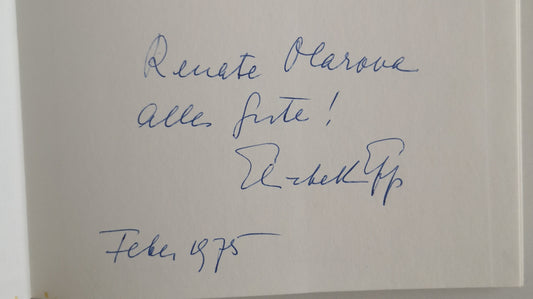 Renate Olarova
alles Gute!
Elisabeth Epp
Feber 1975